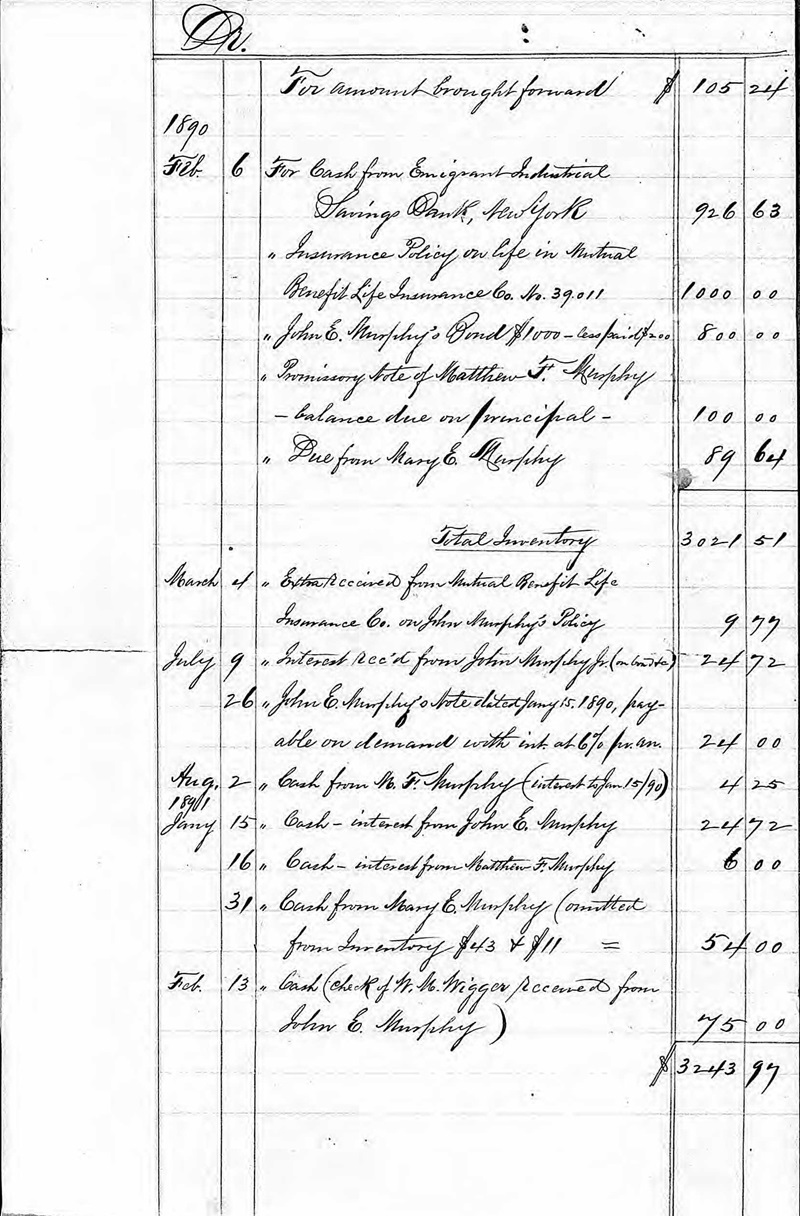 Dr.
For amount brought forward $ 105 24
1890
Feb. 6 For Cash from Emigrant Industrial
Savings Bank, New York 926 63
" Insurance Policy on life in Mutual
Benefit Life Insurance Co. No. 39.011 1000 00
" John E. Murphy's Bond $1000 - less paid $200 800 00
" Promissory Note of Matthew F. Murphy
- balance due on principal - 100 00
" Due from Mary E. Murphy 89 64
Total Inventory 3021 51
March 4 " Extra received from Mutual Benefit Life
Insurance Co. on John Murphy's Policy 9 77
July 9 " Interest rec'd from John Murphy Jr. (on bond &c) 24 72
26 " John E. Murphy's Note dated Jany 15. 1890, pay-
able on demand with int. at 6% pr. an. 24 00
Aug. 2 " Cash from M. F. Murphy (interest to Jan 15/90) 4 25
1891
Jany 15 " Cash - interest from John E. Murphy 24 72
16 " Cash - interest from Matthew F. Murphy 6 00
31 " Cash from Mary E. Murphy (omitted
from Inventory $43 & $11 = 54 00
Feb. 13 " Cash (check of W. M. Wigger received from
John E. Murphy) 75 00
$ 3243 97